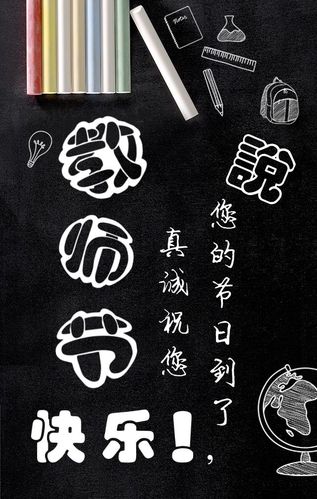 Notes
說
您的节日到了,
真誠祝您
教师节
快乐!